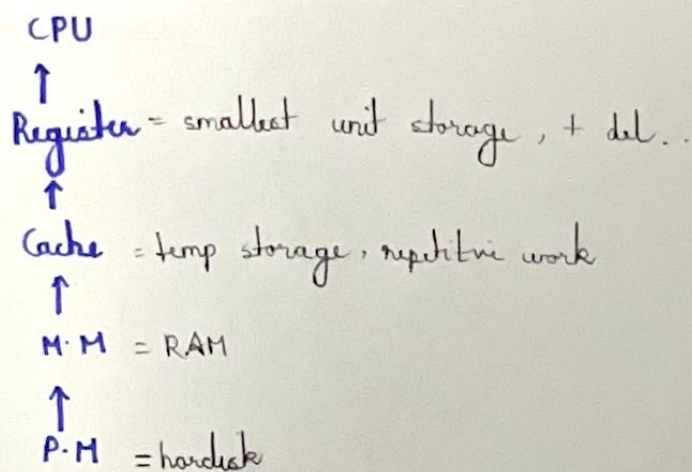 CPU
↑
Register = smallest unit storage, + del..
↑
Cache = temp storage, repetitve work
↑
M.M = RAM
↑
P.M = hardisk